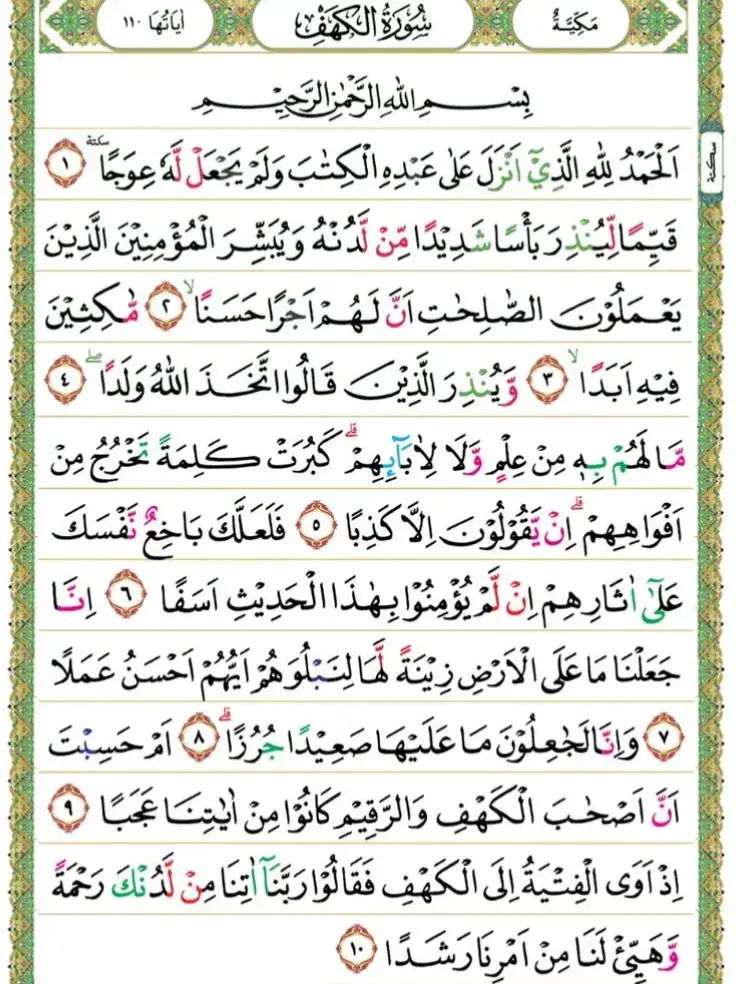 مَكِّيَّةٌ سُوْرَةُ الْكَهْفِ اٰيَاتُهَا ١١٠
بِسْمِ اللهِ الرَّحْمٰنِ الرَّحِيْمِ
اَلْحَمْدُ لِلّٰهِ الَّذِيْٓ اَنْزَلَ عَلٰى عَبْدِهِ الْكِتٰبَ وَلَمْ يَجْعَلْ لَّهٗ عِوَجًا ۜ سكتة ١
سكتة
قَيِّمًا لِّيُنْذِرَ بَأْسًا شَدِيْدًا مِّنْ لَّدُنْهُ وَيُبَشِّرَ الْمُؤْمِنِيْنَ الَّذِيْنَ
يَعْمَلُوْنَ الصّٰلِحٰتِ اَنَّ لَهُمْ اَجْرًا حَسَنًاۙ ٢ مَّاكِثِيْنَ
فِيْهِ اَبَدًاۙ ٣ وَّيُنْذِرَ الَّذِيْنَ قَالُوا اتَّخَذَ اللهُ وَلَدًاۖ ٤
مَّا لَهُمْ بِهٖ مِنْ عِلْمٍ وَّلَا لِاٰبَآئِهِمْۗ كَبُرَتْ كَلِمَةً تَخْرُجُ مِنْ
اَفْوَاهِهِمْۗ اِنْ يَّقُوْلُوْنَ اِلَّا كَذِبًا ٥ فَلَعَلَّكَ بَاخِعٌ نَّفْسَكَ
عَلٰٓى اٰثَارِهِمْ اِنْ لَّمْ يُؤْمِنُوْا بِهٰذَا الْحَدِيْثِ اَسَفًا ٦ اِنَّا
جَعَلْنَا مَا عَلَى الْاَرْضِ زِيْنَةً لَّهَا لِنَبْلُوَهُمْ اَيُّهُمْ اَحْسَنُ عَمَلًا
٧ وَاِنَّا لَجٰعِلُوْنَ مَا عَلَيْهَا صَعِيْدًا جُرُزًاۗ ٨ اَمْ حَسِبْتَ
اَنَّ اَصْحٰبَ الْكَهْفِ وَالرَّقِيْمِ كَانُوْا مِنْ اٰيٰتِنَا عَجَبًا ٩
اِذْ اَوَى الْفِتْيَةُ اِلَى الْكَهْفِ فَقَالُوْا رَبَّنَآ اٰتِنَا مِنْ لَّدُنْكَ رَحْمَةً
وَّهَيِّئْ لَنَا مِنْ اَمْرِنَا رَشَدًا ١٠